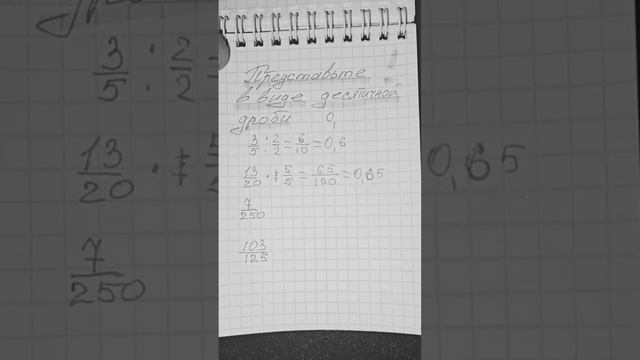 Представьте
в виде десятичной
дроби 0,
3/5 · 2/2 = 6/10 = 0,6
13/20 · 5/5 = 65/100 = 0,65
7/250
103/125